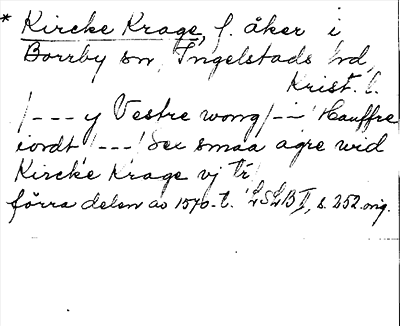 * Kircke Krage, f. åker i
Borrby sn, Ingelstads hd,
Krist. l.
/--- y Vestre wong/--- Hauffre
iordt /---/ Sex smaa agre wid
Kircke Krage vj tr/
förra delen av 1570-t. LSLB II, s. 252. orig.